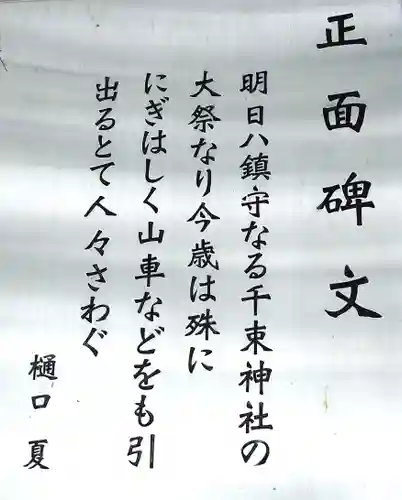 正面碑文
明日ハ鎮守なる千束神社の
大祭なり今歳は殊に
にぎはしく山車などをも引
出るとて人々さわぐ
樋口夏